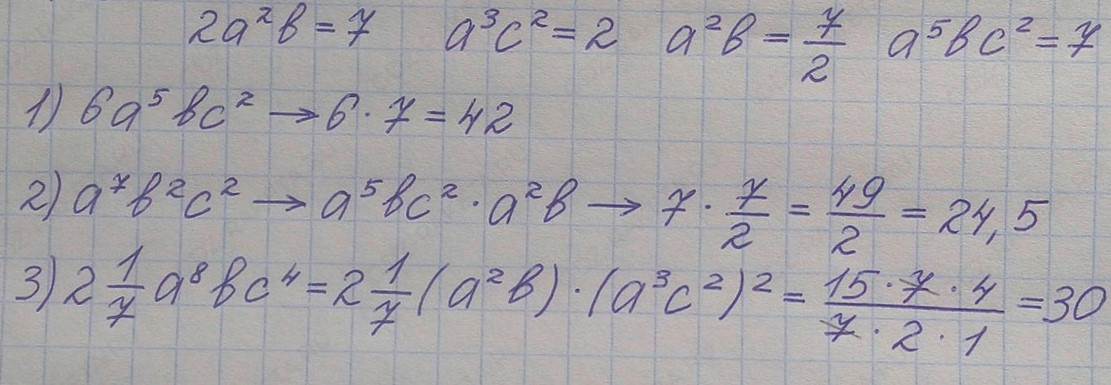 2a²b = 7 a³c² = 2 a²b = 7/2 a⁵bc² = 7
1) 6a⁵bc² → 6 · 7 = 42
2) a⁷b²c² → a⁵bc² · a²b → 7 · 7/2 = 49/2 = 24,5
3) 2 1/7 a⁸bc⁴ = 2 1/7 (a²b) · (a³c²)² = 15 · 7 · 4 / 7 · 2 · 1 = 30